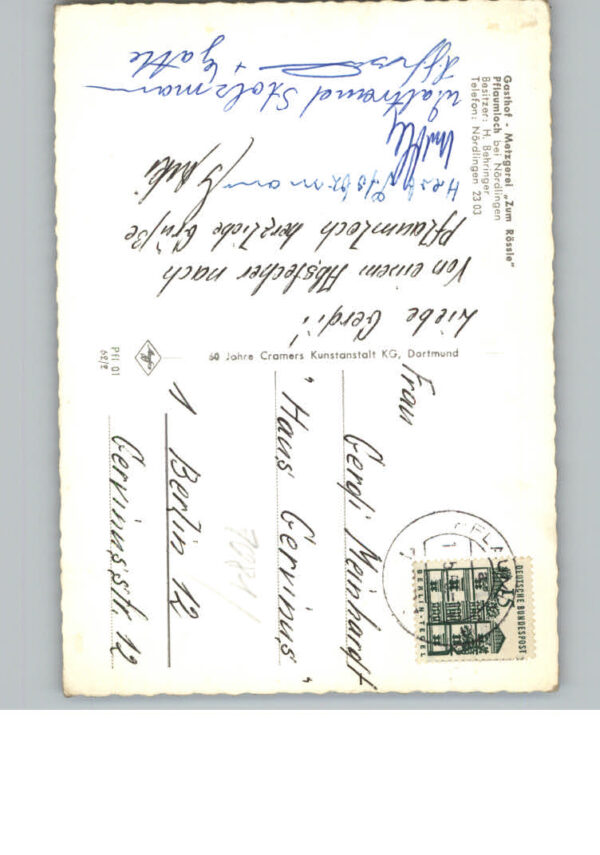 Gasthof - Metzgerei „Zum Rössle"
Pflaumloch bei Nördlingen
Besitzer: H. Behringer
Telefon: Nördlingen 23 03
Liebe Gerdi!
Von einem Abstecher nach
Pflaumloch herzliche Grüße
Waltraud Stolzmann
+ Gatte
60 Jahre Cramers Kunstanstalt KG, Dortmund
Pfl 01
62/2
DEUTSCHE BUNDESPOST
15
BERLIN-TEGEL
Frau
Gerdi Meinhardt
"Haus Gervinus"
1 Berlin 12
Gervinusstr. 12